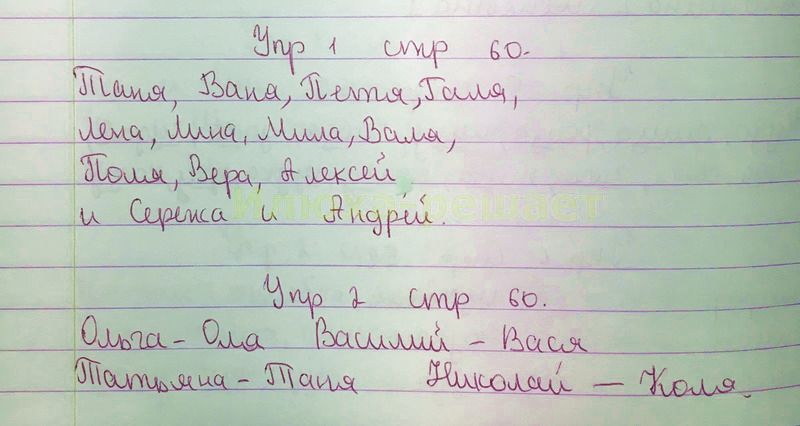 Упр 1 стр 60.
Таня, Вана, Петя, Галя,
Лена, Лина, Мила, Валя,
Поля, Вера, Алексей
и Сережа и Андрей.
Илюха-решает
Упр 2 стр 60.
Ольга - Оля Василий - Вася
Татьяна - Таня Николай - Коля.